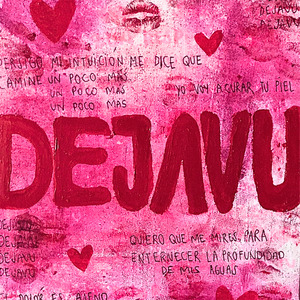 DEJAVU
DEJAVU
PERSIGO MI INTUICIÓN ME DICE QUE
CAMINE UN POCO MÁS
UN POCO MÁS
UN POCO MÁS
YO VOY A CURAR TU PIEL
DEJAVU
DEJAVU
DEJAVU
DEJAVU
DEJAVU
QUIERO QUE ME MIRES PARA
ENTERNECER LA PROFUNDIDAD
DE MIS AGUAS
DOLOR ES AJENO